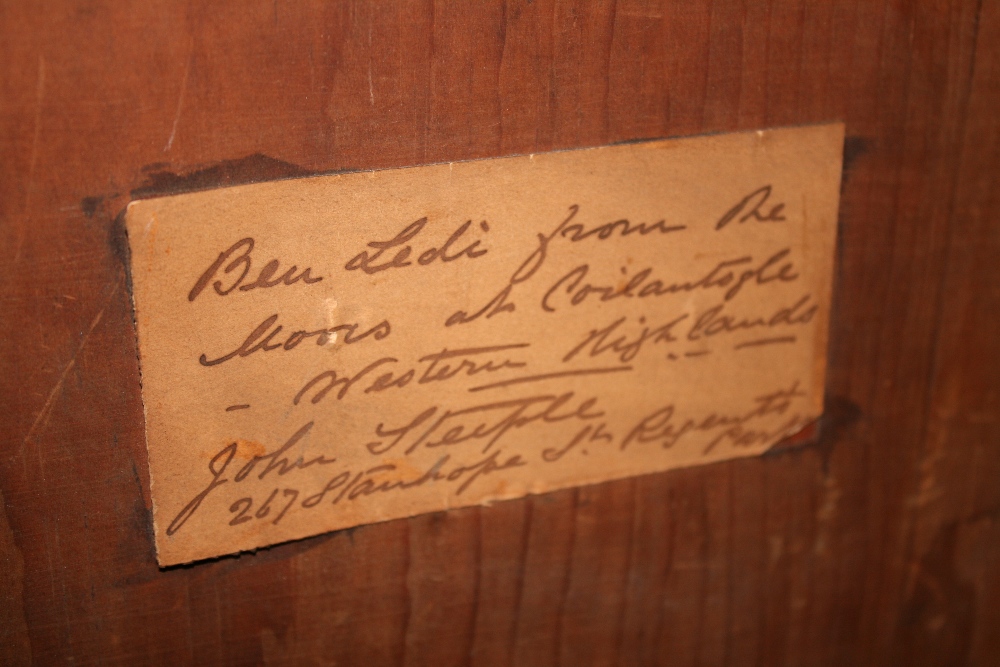 Ben Ledi from the
Moors at Coilantogle
- Western Highlands
John Steeple
267 Stanhope St. Regents
Park